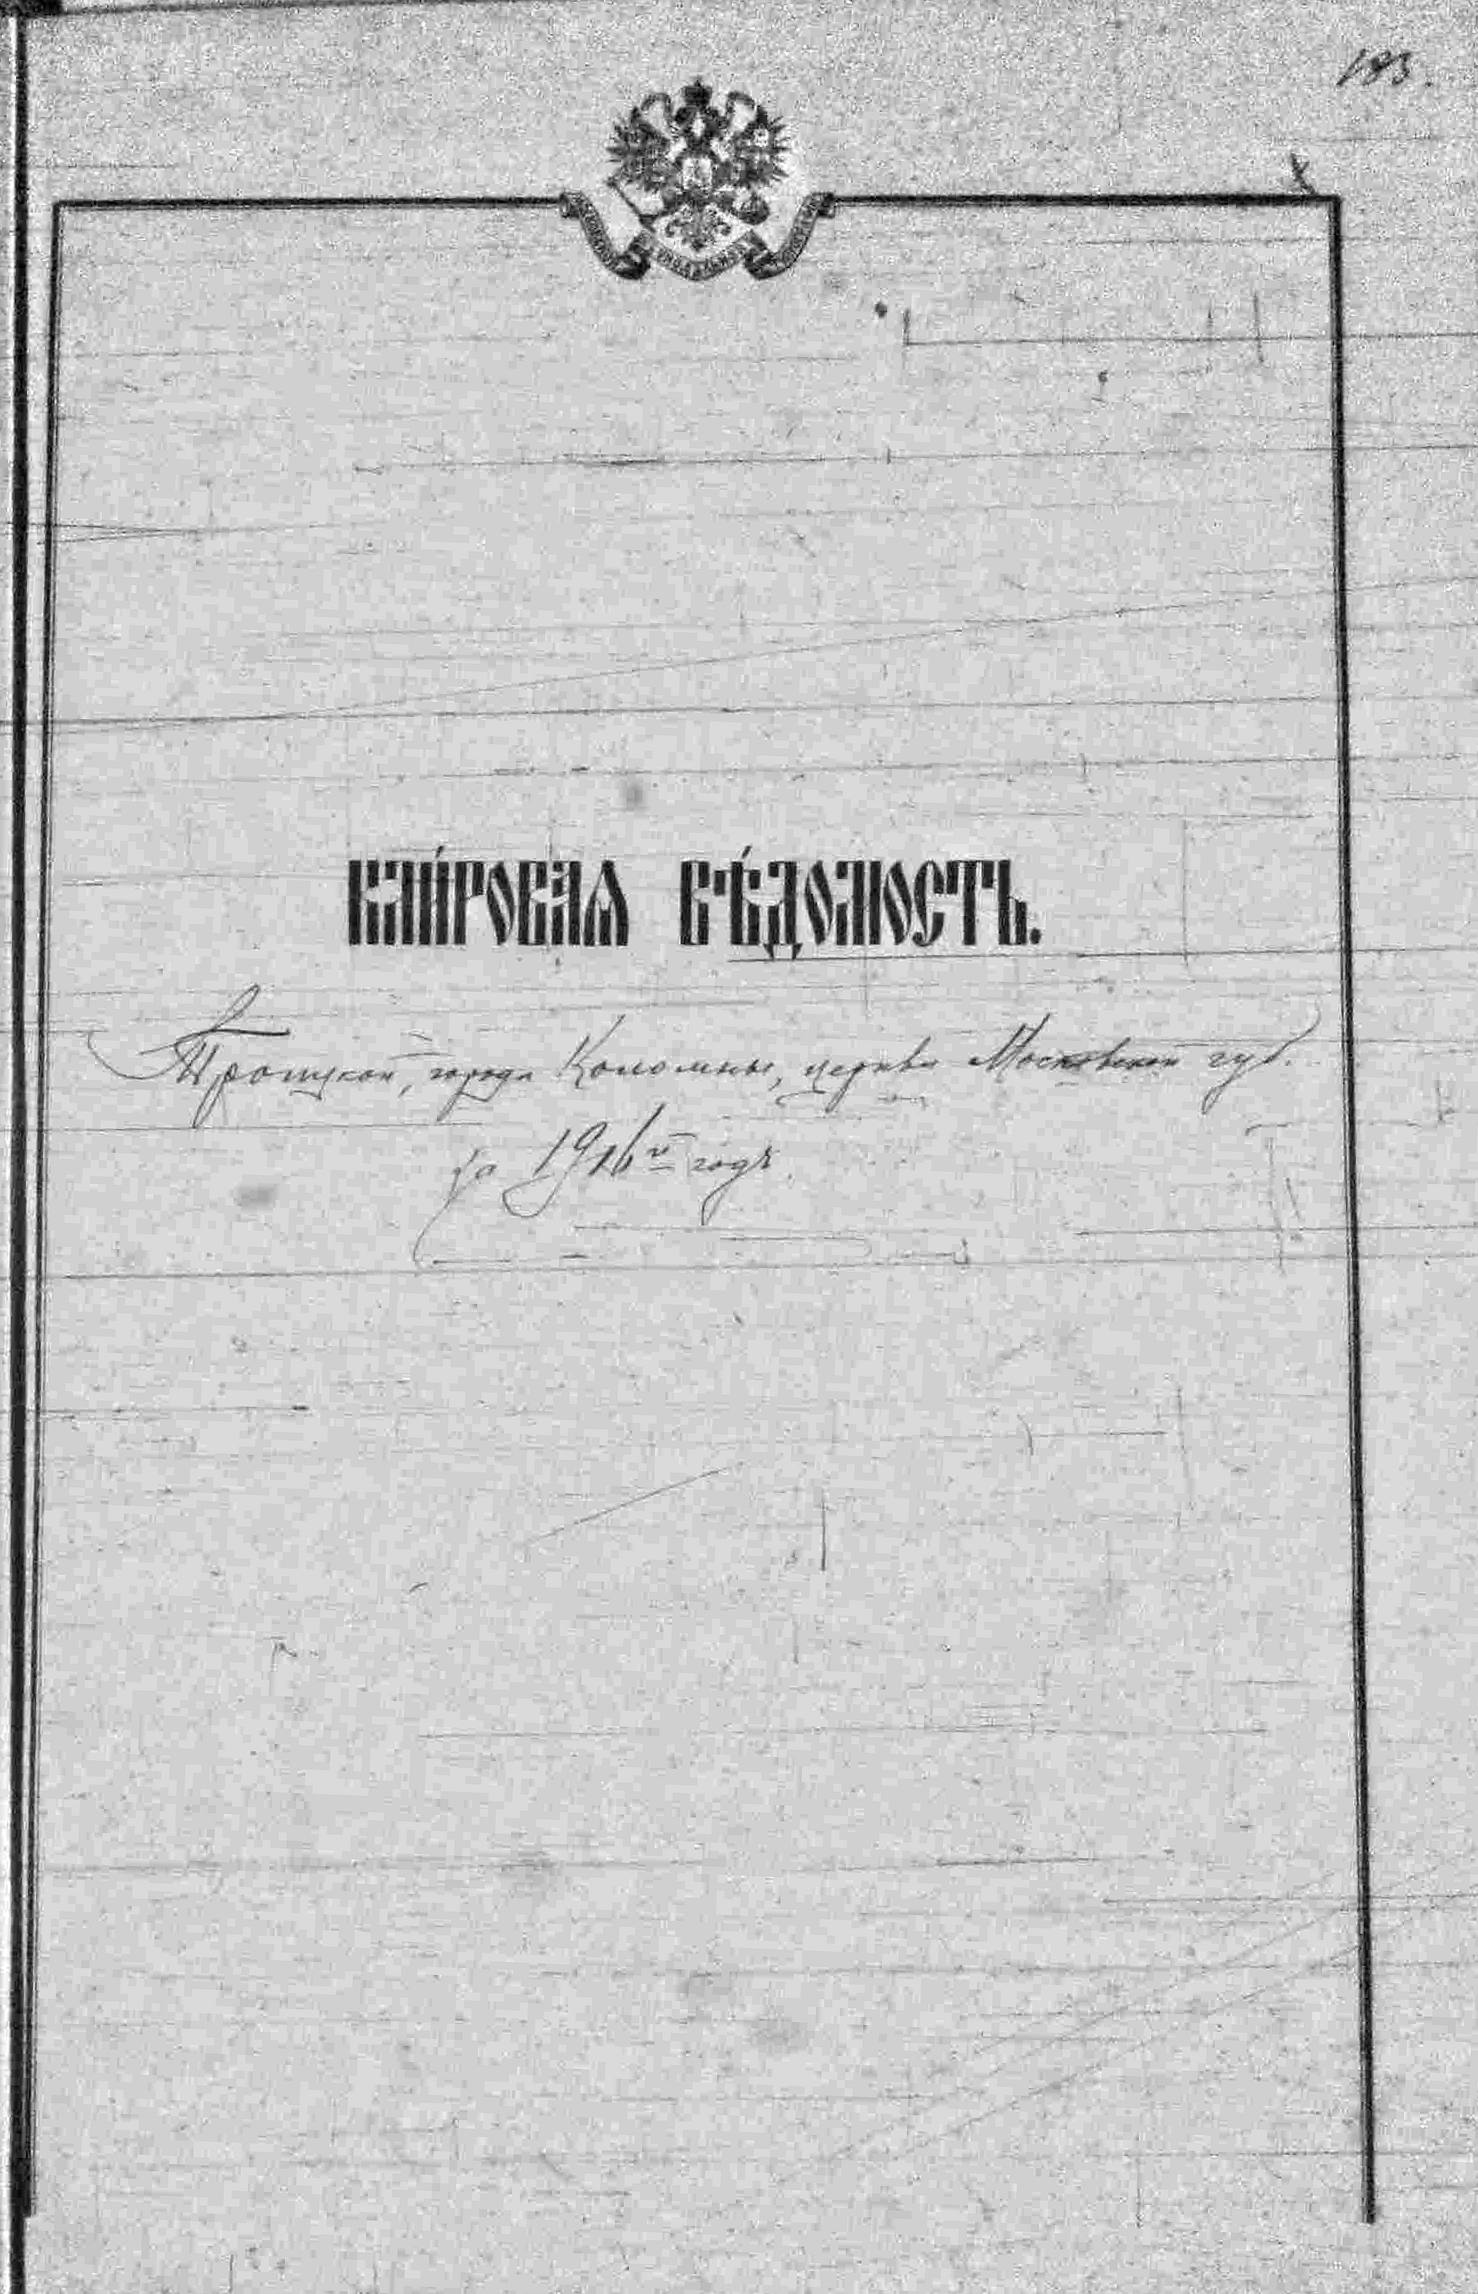 183.
КЛИ́РОВАЯ ВѢ́ДОМОСТЬ.
Троицкой, города Коломны, церкви Московской губ.
за 1916й годъ.